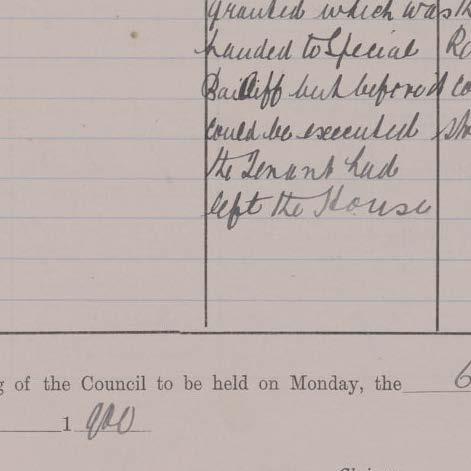 granted which was
handed to Special
Bailiff but before it
could be executed
the Tenant had
left the House
of the Council to be held on Monday, the 6
1900